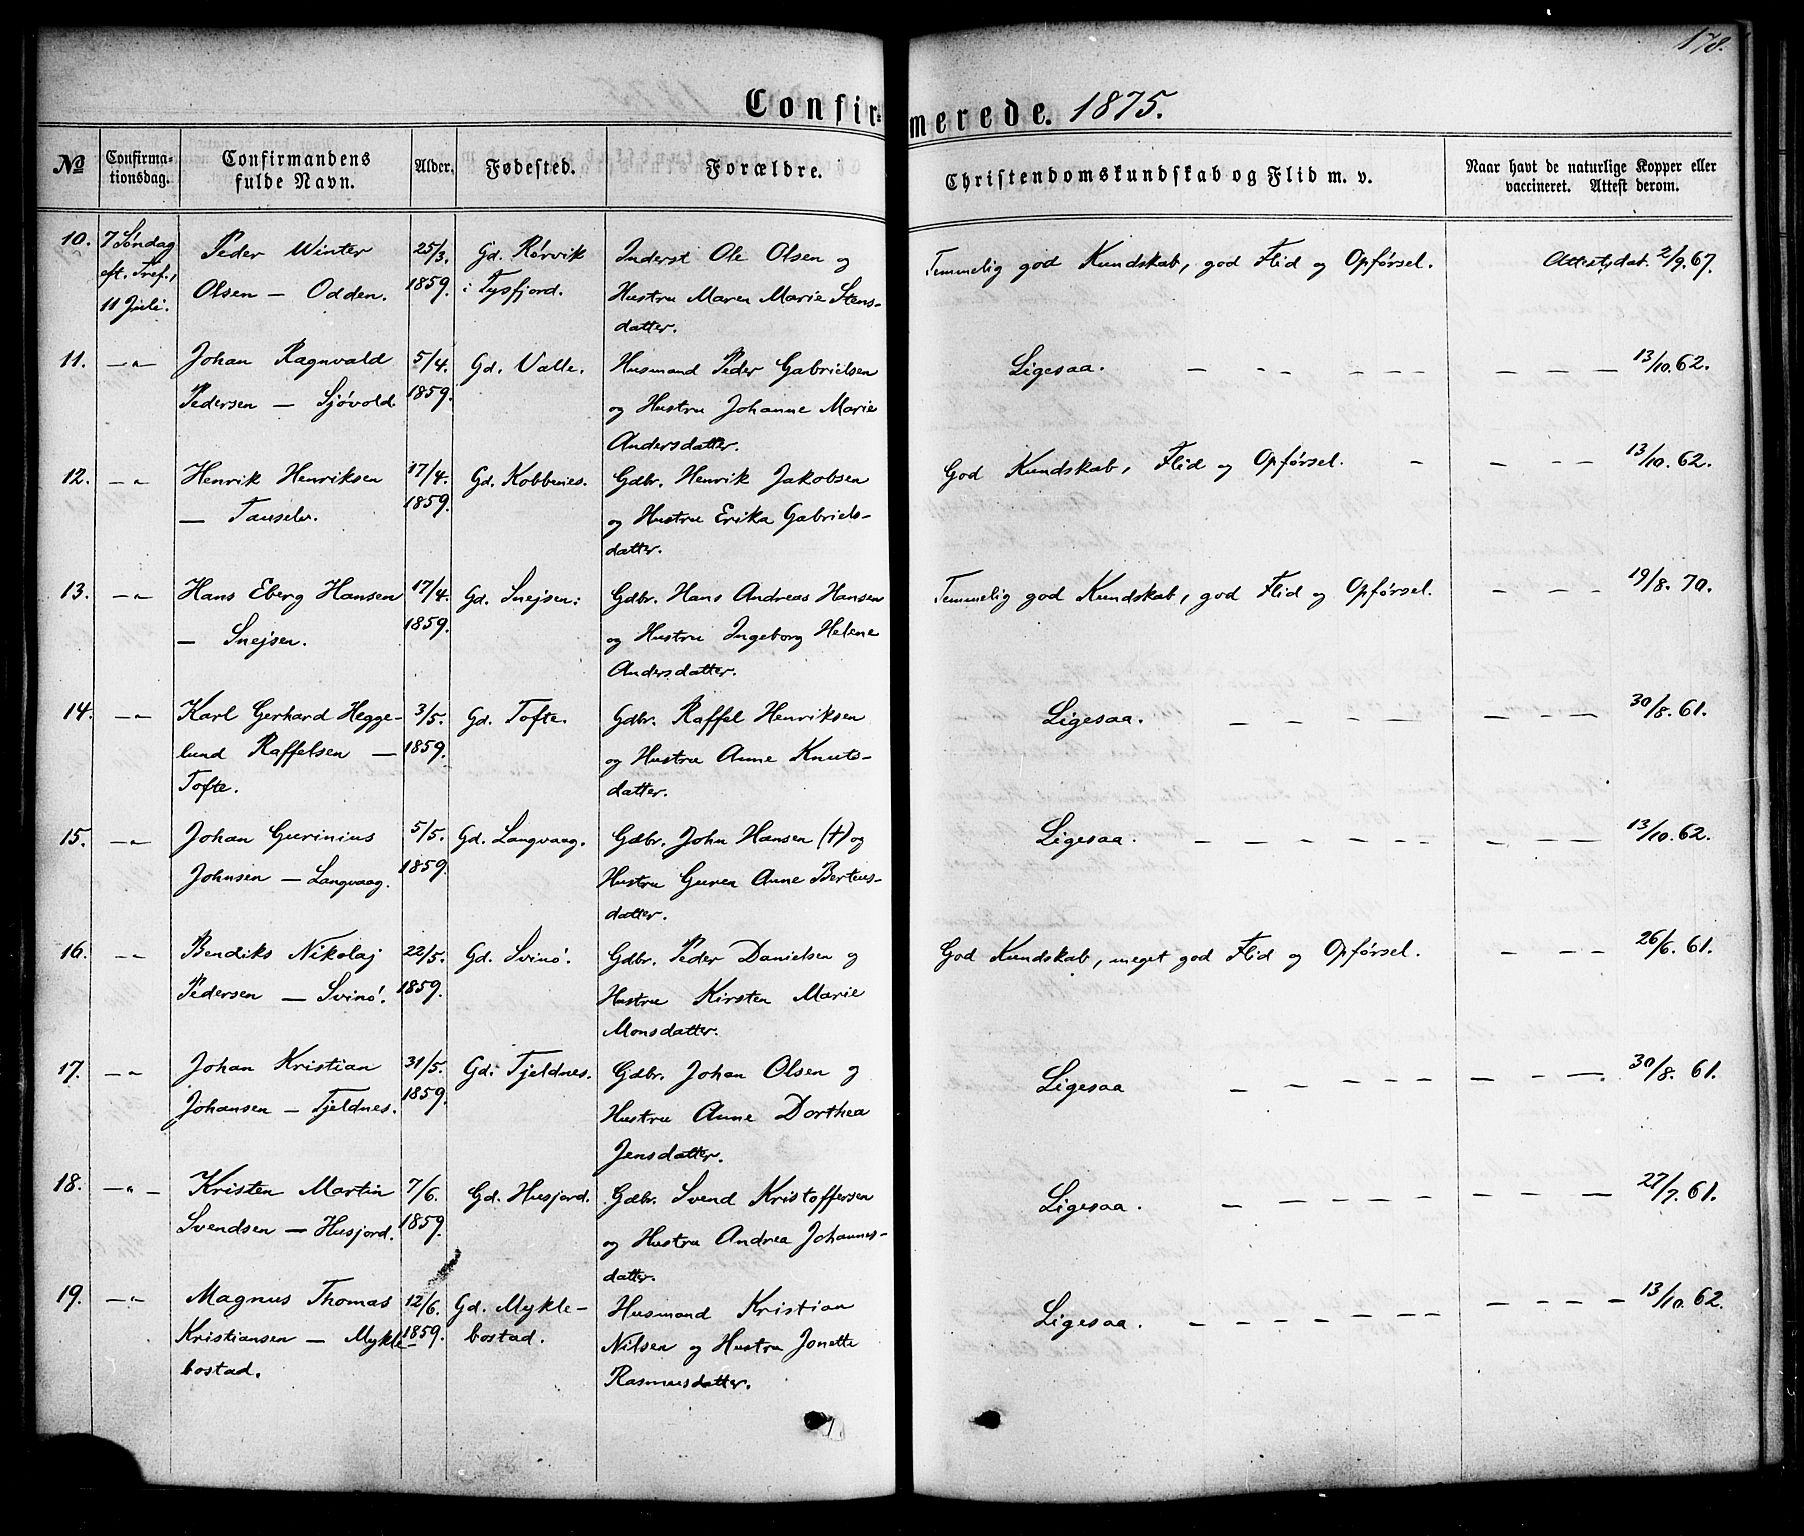 178.
Confirmerede. 1875.
No
Confirmationsdag.
Confirmandens fulde Navn.
Alder.
Fødested.
Forældre.
Christendomskundskab og Flid m. v.
Naar havt de naturlige Kopper eller vaccineret. Attest derom.
10. 7 Søndag Peder Winter 25/3. Gd. Rørvik Inderst Ole Olsen og Temmelig god Kundskab, god Flid og Opførsel. Attest, dat. 2/9. 67.
eft. Tref., Olsen — Odden. 1859. i Tysfjord. Hustru Maren Marie Stens-
11 Juli. datter.
11. —„— Johan Ragnvald 5/4. Gd. Valle. Husmand Peder Gabrielsen Ligesaa. — - - — - — — — — — 13/10. 62.
Pedersen — Sjøvold 1859. og Hustru Johanne Marie
Andersdatter.
12. —„— Henrik Henriksen 17/4. Gd. Kobbenes. Gdbr. Henrik Jakobsen God Kundskab, Flid og Opførsel. — — — — 13/10. 62.
— Tausele. 1859. og Hustru Erika Gabriels-
datter.
13. —„— Hans Eberg Hansen 17/4. Gd. Snejsen: Gdbr. Hans Andreas Hansen Temmelig god Kundskab, god Flid og Opførsel. — — — 19/8. 70.
— Snejsen. 1859. og Hustru Ingeborg Helene
Andersdatter.
14. —„— Karl Gerhard Hegge- 3/5. Gd. Tofte. Gdbr. Raffel Henriksen Ligesaa. — — — — — — — — 30/8. 61.
lund Raffelsen — 1859. og Hustru Anne Knuts-
Tofte. datter.
15. —„— Johan Gurinius 5/5. Gd. Langvaag. Gdbr. John Hansen (†) og Ligesaa. — — — — — — — — 13/10. 62.
Johnsen — Langvaag. 1859. Hustru Guren Anne Berteus-
datter.
16. —„— Bendiks Nikolaj 22/5. Gd. Svinø. Gdbr. Peder Danielsen og God Kundskab, meget god Flid og Opførsel. — — — 26/6. 61.
Pedersen — Svinø. 1859. Hustru Kirsten Marie
Monsdatter.
17. —„— Johan Kristian 31/5. Gd. Tjeldnes. Gdbr. Johan Olsen og Ligesaa — — — — — — — — 30/8. 61.
Johansen — Tjeldnes. 1859. Hustru Anne Dorthea
Jensdatter.
18. —„— Kristen Martin 7/6. Gd. Husjord. Gdbr. Svend Kristoffersen Ligesaa. — — — — — — — — 27/7. 61.
Svendsen — Husjord. 1859. og Hustru Andrea Johannes-
datter.
19. —„— Magnus Thomas 12/6. Gd. Mykle- Husmand Kristian Ligesaa. — — — — — — — — — — 13/10. 62.
Kristiansen — Mykle- 1859. bostad. Nilsen og Hustru Jonette
bostad. Rasmusdatter.